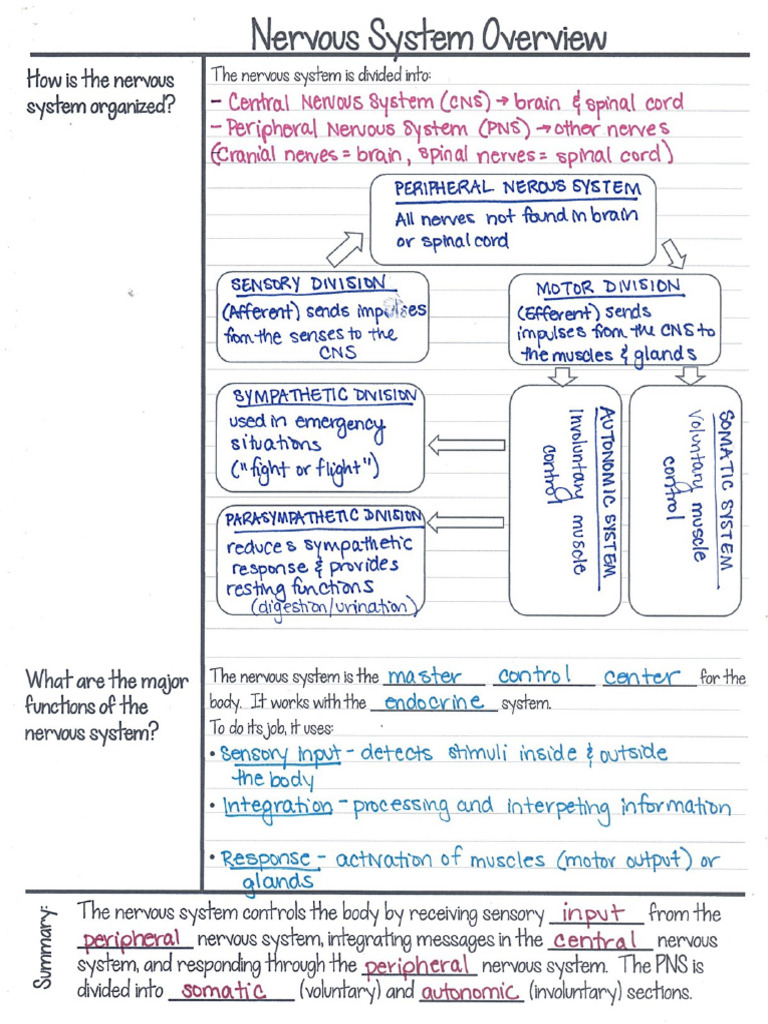 Nervous System Overview
How is the nervous
system organized?
The nervous system is divided into:
- Central Nervous System (CNS) → brain & spinal cord
- Peripheral Nervous System (PNS) → other nerves
(Cranial nerves = brain, spinal nerves = spinal cord)
PERIPHERAL NEROUS SYSTEM
All nerves not found in brain
or spinal cord
SENSORY DIVISION
(Afferent) sends impulses
from the senses to the
CNS
MOTOR DIVISION
(Efferent) sends
impulses from the CNS to
the muscles & glands
SYMPATHETIC DIVISION
used in emergency
situations
("fight or flight")
PARASYMPATHETIC DIVISION
reduces sympathetic
response & provides
resting functions
(digestion/urination)
AUTONOMIC SYSTEM
Involuntary muscle
control
SOMATIC SYSTEM
Voluntary muscle
control
What are the major
functions of the
nervous system?
The nervous system is the master control center for the
body. It works with the endocrine system.
To do its job, it uses:
• Sensory input - detects stimuli inside & outside
the body
• Integration - processing and interpeting information
• Response - activation of muscles (motor output) or
glands
Summary:
The nervous system controls the body by receiving sensory input from the
peripheral nervous system, integrating messages in the central nervous
system, and responding through the peripheral nervous system. The PNS is
divided into somatic (voluntary) and autonomic (involuntary) sections.